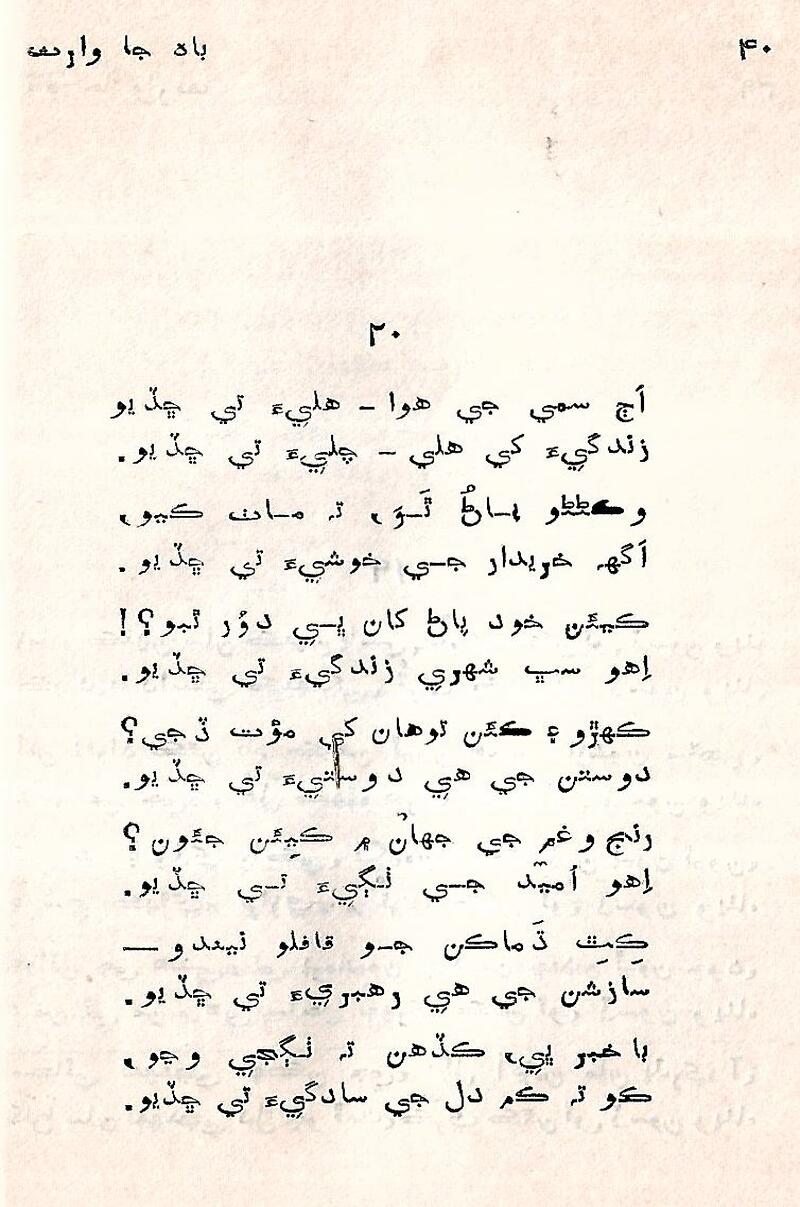 ۴۰
باہ جا وارث
۲۰
اَڄ سمي جي هوا - هليءَ تي ڇڏيو
زندگيءَ کي هلي - چليءَ تي ڇڏيو.
وڪڻڻو پاڻُ ٿَو، تہ مات ڪيو،
اَگهہ خريدار جي خوشيءَ تي ڇڏيو.
ڪيئن خود پاڻ کان ڀي دوُر ٿيو؟!
اِهو سڀ شهري زندگيءَ تي ڇڏيو.
ڪهڙو ۽ ڪئن توهان کي مؤت ڏجي؟
دوستن جي هي دوستيءَ تي ڇڏيو.
رنج و غم جي جهان ۾ ڪيئن جئون؟
اِهو اُميد جي ٺڳيءَ تي ڇڏيو.
ڪِٿ ڌَماڪن جو قافلو نيندو —
سازشن جي هي رهبريءَ تي ڇڏيو.
با خبر ٿي، ڪڏهن تہ ٺڳجي وڃو،
ڪو تہ ڪم دل جي سادگيءَ تي ڇڏيو.